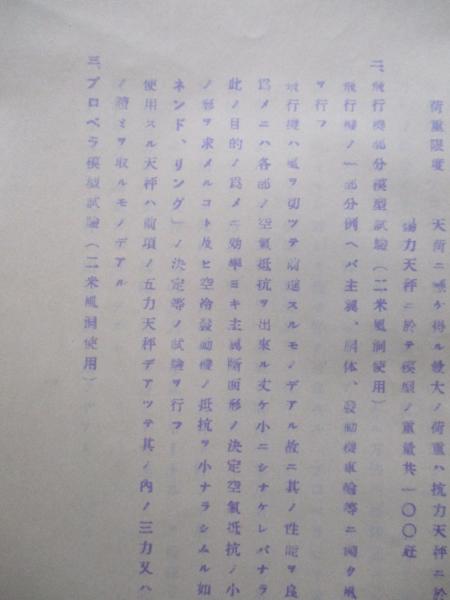 荷重限度　　天秤ニ感ケ得ル最大ノ荷重ハ抗力天秤ニ於
揚力天秤ニ於テ模型ノ重量共一〇〇瓩
二、飛行機部分模型試驗（二米風洞使用）
飛行機ノ一部分例ヘバ主翼、胴体、發動機車輪等ニ働ク風
ヲ行フ
飛行機ハ風ヲ切ツテ前進スルモノデアル故ニ其ノ性能ヲ良
爲メニハ各部ノ空氣抵抗ヲ出來ル丈ケ小ニシナケレバナラ
此ノ目的ノ爲メニ効率ヨキ主翼斷面形ノ決定空氣抵抗ノ小
ノ形ヲ求メルコト及ヒ空冷發動機ノ抵抗ヲ小ナラシムル如
ネンド、リング」ノ決定等ノ試驗ヲ行フ
使用スル天秤ハ前項ノ五力天秤デアツテ其ノ內ノ三力又ハ
ノ積ミヲ取ルモノデアル
三、プロペラ模型試驗（二米風洞使用）